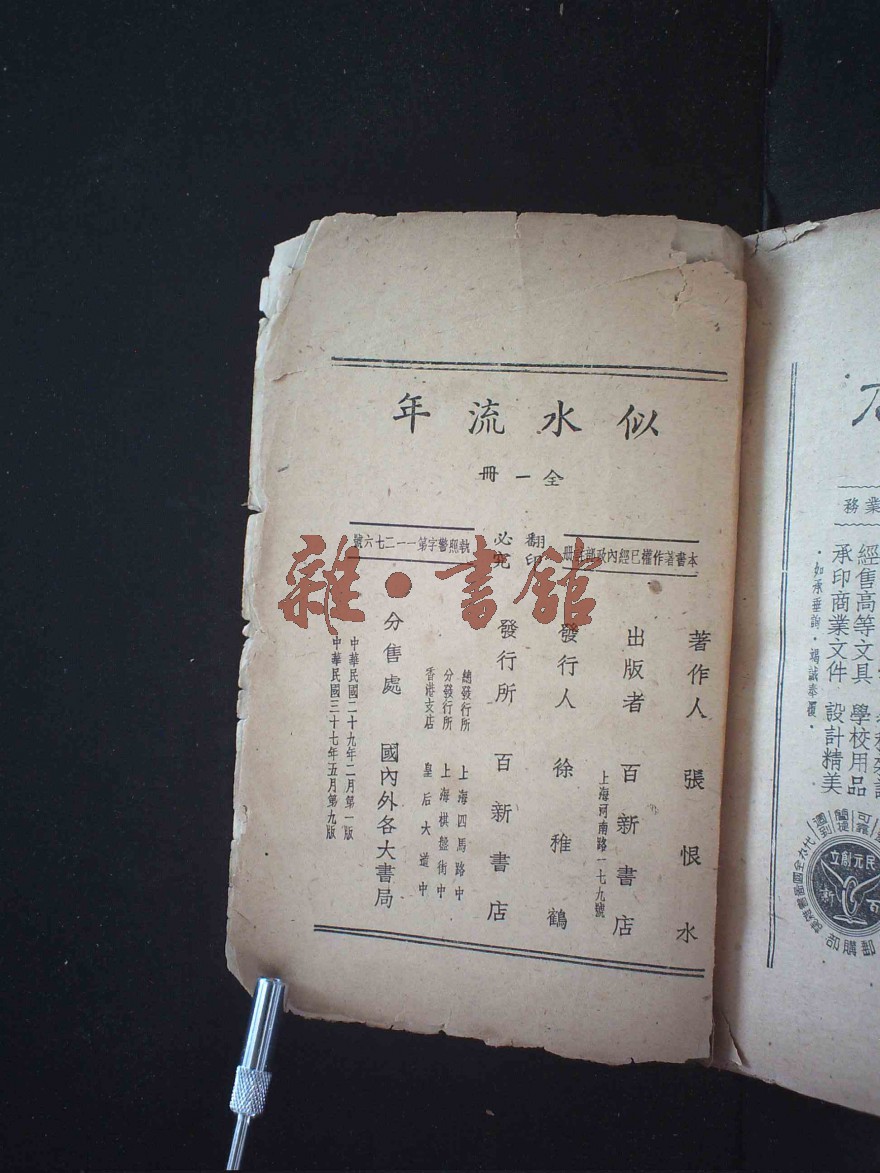 似水流年
全一冊
本書著作權已經內政部註冊
翻印
必究
執照警字第一一二七六號
著作人 張恨水
出版者 百新書店
上海河南路一七九號
發行人 徐稚鶴
發行所 百新書店
總發行所 上海四馬路中
分發行所 上海棋盤街中
香港支店 皇后大道中
分售處 國內外各大書局
中華民國二十九年二月第一版
中華民國三十七年五月第九版
雜·書館
業務
經售高等文具 學校用品
承印商業文件 設計精美
·如承垂詢·竭誠奉覆·
民元創立
新
百
郵購部